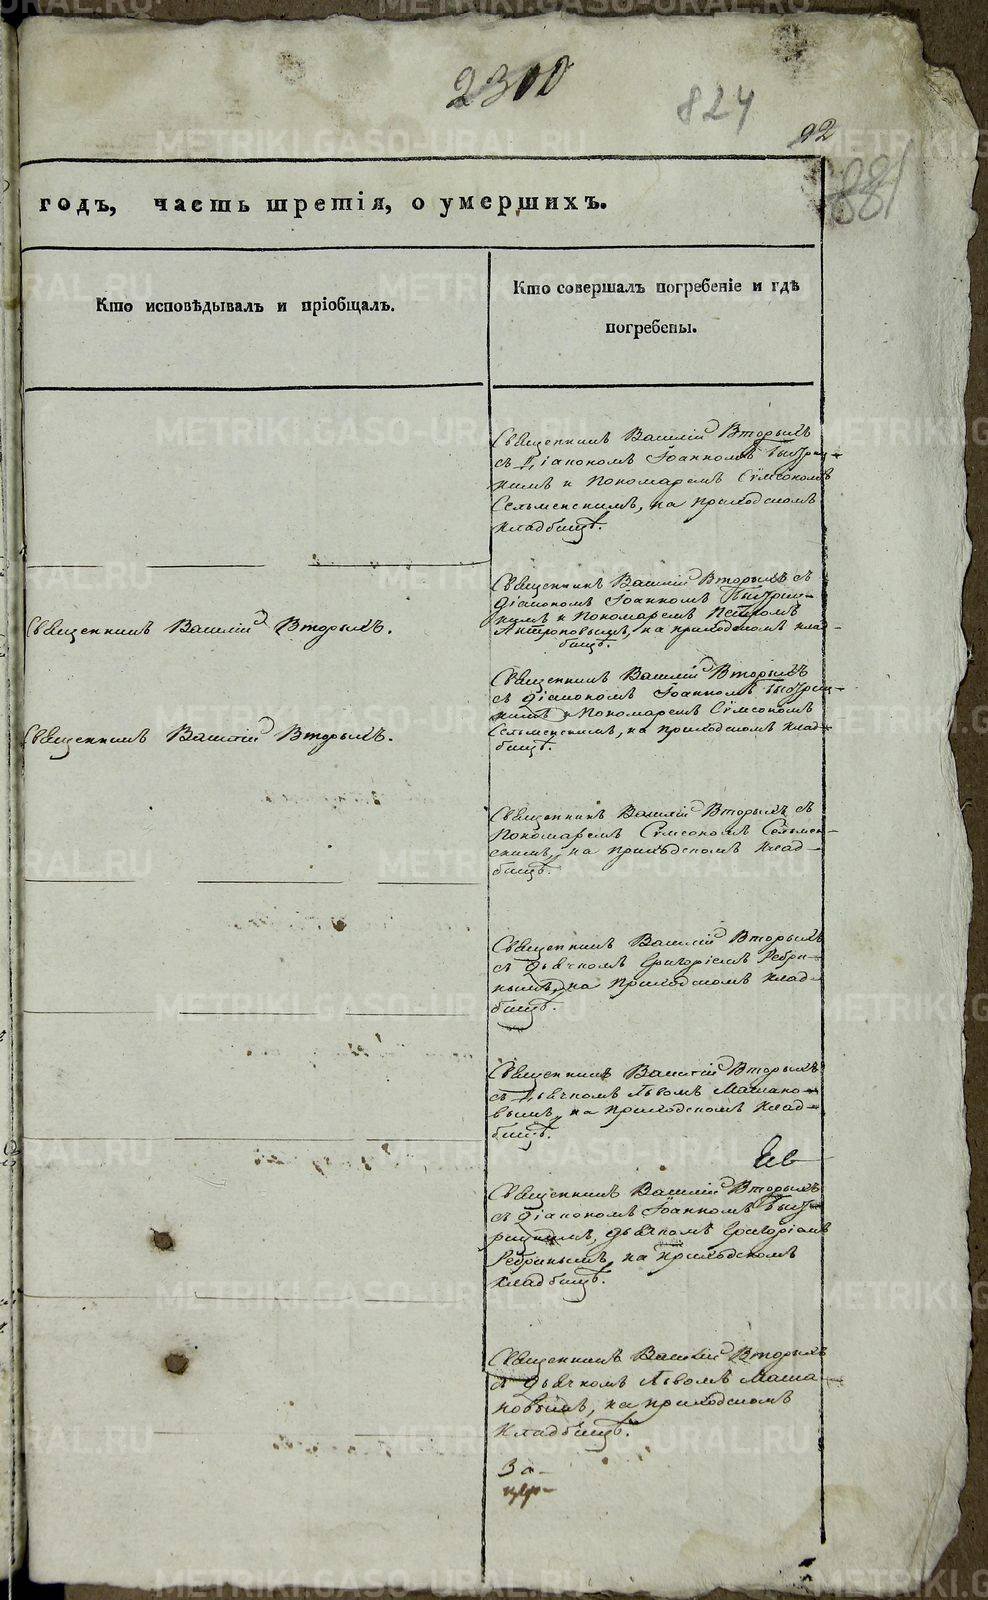 2300
824
92
881
годъ, часть третія, о умершихъ.
Кто исповѣдывалъ и пріобщалъ.
Кто совершалъ погребеніе и гдѣ
погребены.
Священникъ Василій Вторыхъ
съ Діакономъ Іоанномъ Быстриц-
кимъ и Пономаремъ Сѵмеономъ
Сельменскимъ, на приходскомъ
кладбищѣ.
Священникъ Василій Вторыхъ съ
Діакономъ Іоанномъ Быстриц-
кимъ и Пономаремъ Петромъ
Антроповымъ, на приходскомъ клад-
бищѣ.
Священникъ Василій Вторыхъ.
Священникъ Василій Вторыхъ
съ Діакономъ Іоанномъ Быстриц-
кимъ и Пономаремъ Сѵмеономъ
Сельменскимъ, на приходскомъ клад-
бищѣ.
Священникъ Василій Вторыхъ.
Священникъ Василій Вторыхъ съ
Пономаремъ Сѵмеономъ Сельмен-
скимъ, на приходскомъ клад-
бищѣ.
Священникъ Василій Вторыхъ
съ Дьячкомъ Григоріемъ Ребри-
нымъ, на приходскомъ клад-
бищѣ.
Священникъ Василій Вторыхъ
съ Дьячкомъ Львомъ Машано-
вымъ, на приходскомъ клад-
бищѣ.
Священникъ Василій Вторыхъ
съ Діакономъ Іоанномъ Быст-
рицкимъ, Дьячкомъ Григоріемъ
Ребринымъ, на приходскомъ
кладбищѣ.
Священникъ Василій Вторыхъ
съ Дьячкомъ Львомъ Маша-
новымъ, на приходскомъ
кладбищѣ.
За-
METRIKI.GASO-URAL.RU